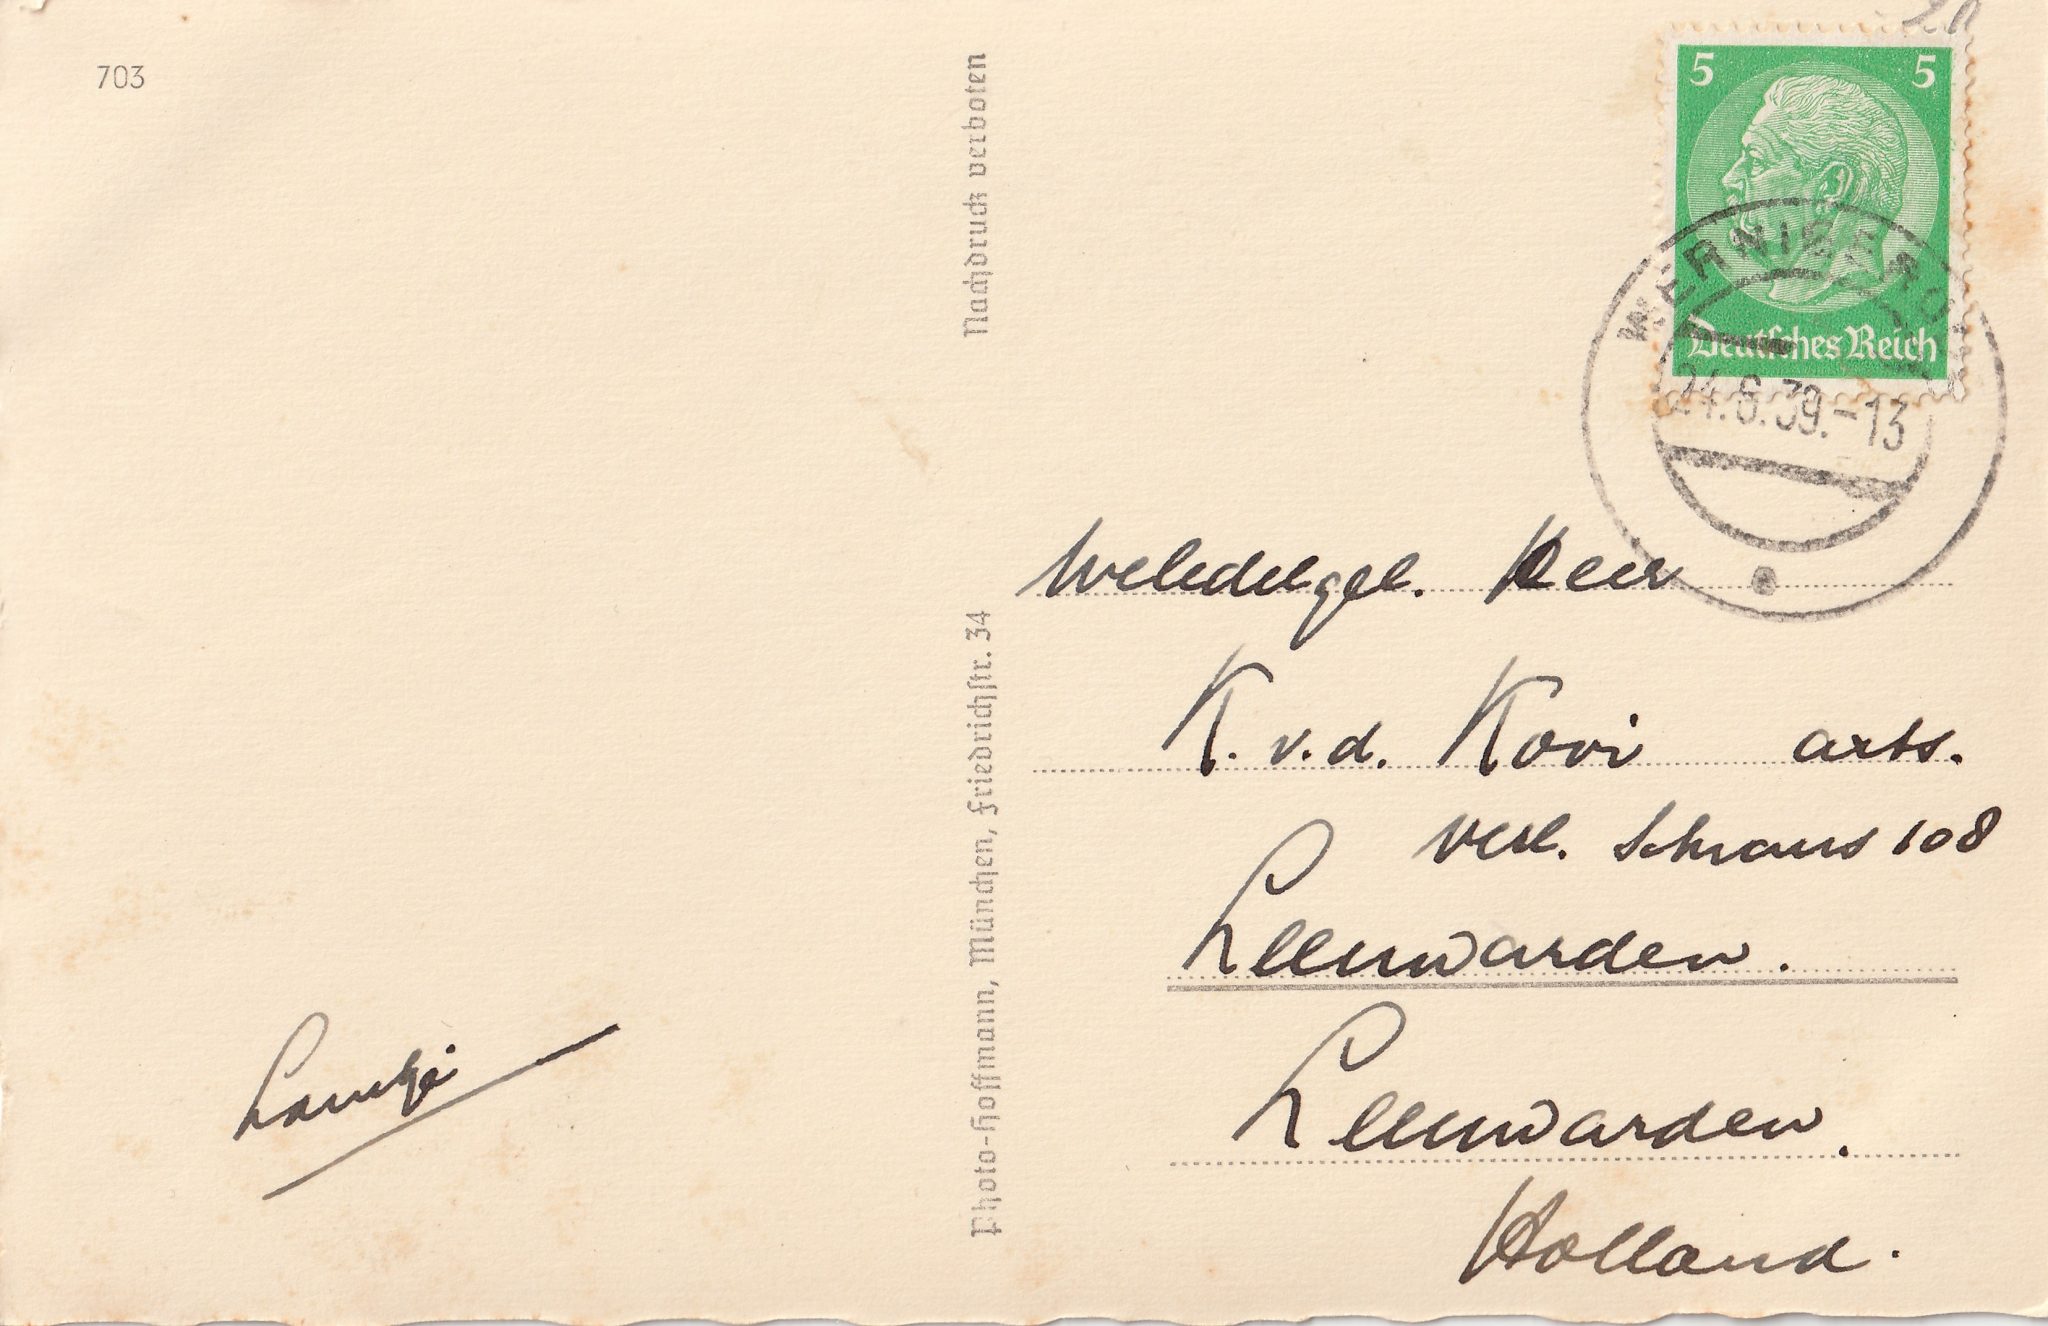 703
Nachdruck verboten
Photo-Hoffmann, München, Friedrichstr. 34
5 5
Deutsches Reich
WERNIGERO
24.6.39.-13
Weledelgel. Heer
K. v.d. Kooi arts.
verl. Schrans 108
Leeuwarden.
Leeuwarden.
Holland.